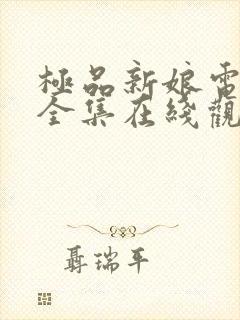 極品新娘電
全集在綫觀
聶瑞平